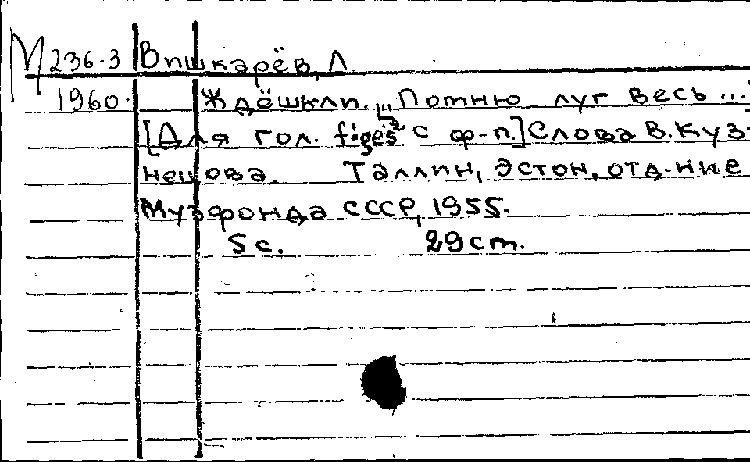 М 236-3 Вишкарёв, Л.
1960. Ждёшь ли. „Помню луг весь ...
[Для гол. f¹-ges² с ф-п.] Слова В. Куз-
нецова. Таллин, Эстон. отд-ние
Музфонда СССР, 1955.
5 с. 29 cm.